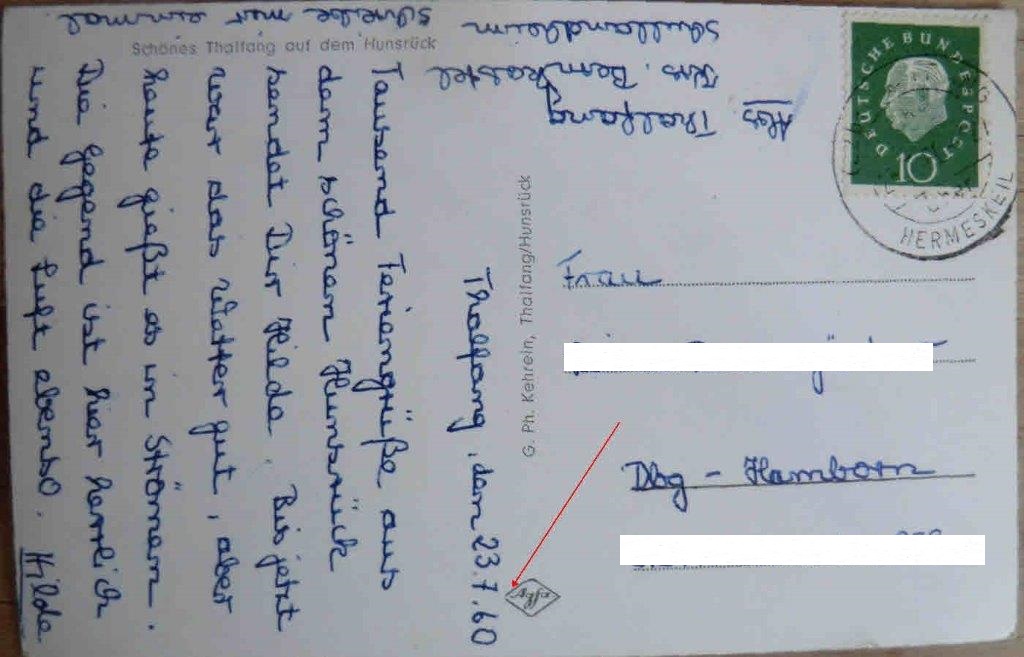 Schönes Thalfang auf dem Hunsrück
Thalfang, den 23.7.60
Tausend Feriengrüße aus
dem schönen Hunsrück
sendet Dir Hilde. Bis jetzt
war das Wetter gut, aber
heute gießt es in Strömen.
Die Gegend ist hier herrlich
und die Luft ebenso. Hilde
Abs. Thalfang
Krs. Bernkastel
Schullandheim
Schreibe mir einmal.
G. Ph. Kehrein, Thalfang/Hunsrück
Agfa
DEUTSCHE BUNDESPOST
10
HERMESKEIL
Frau
Dbg - Hamborn